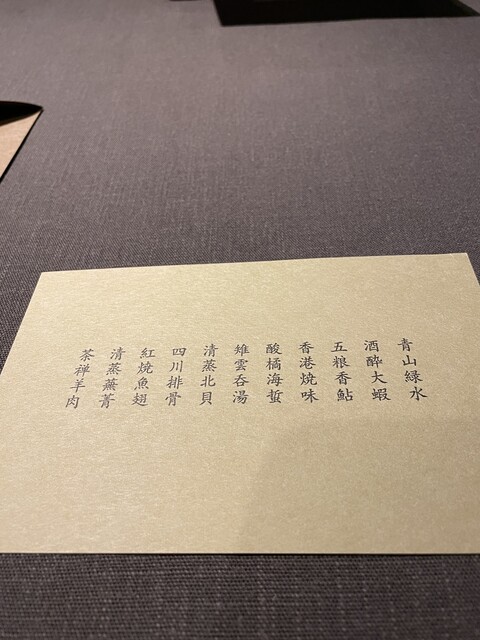 青山緑水
酒酔大蝦
五粮香鮎
香港焼味
酸橘海蜇
雉雲呑湯
清蒸北貝
四川排骨
紅焼魚翅
清蒸蕪菁
茶禅羊肉